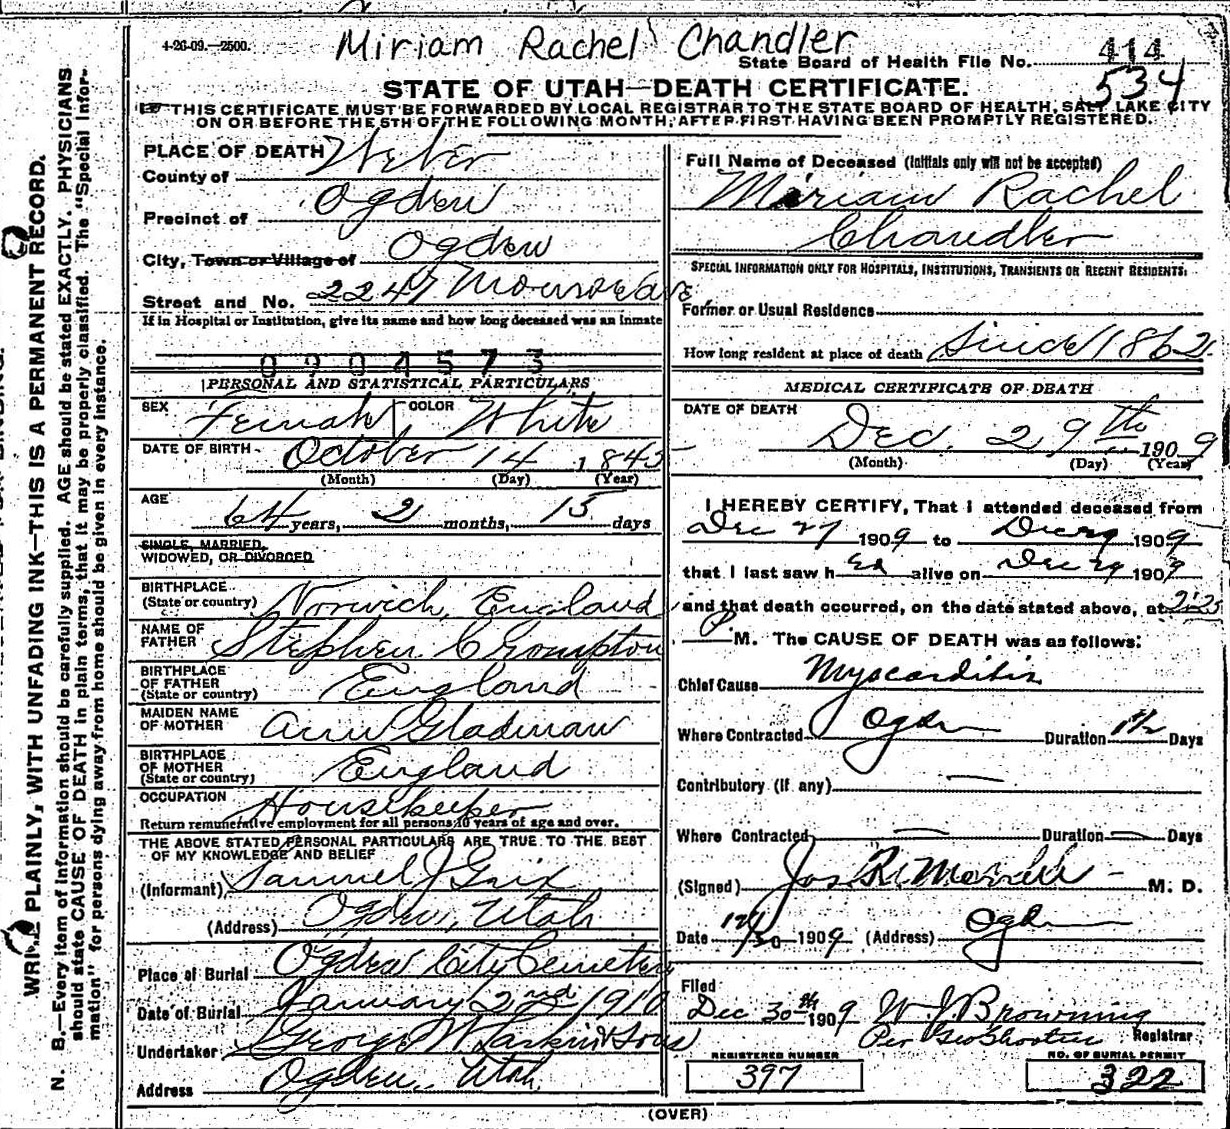 4-26-09.—2500.
Miriam Rachel Chandler
State Board of Health File No. 414
534
STATE OF UTAH—DEATH CERTIFICATE.
THIS CERTIFICATE MUST BE FORWARDED BY LOCAL REGISTRAR TO THE STATE BOARD OF HEALTH, SALT LAKE CITY
ON OR BEFORE THE 5TH OF THE FOLLOWING MONTH, AFTER FIRST HAVING BEEN PROMPTLY REGISTERED.
PLACE OF DEATH
County of Weber
Precinct of Ogden
City, Town or Village of Ogden
Street and No. 2247 Monroe Ave
If in Hospital or Institution, give its name and how long deceased was an inmate
0904573
PERSONAL AND STATISTICAL PARTICULARS
SEX Female COLOR White
DATE OF BIRTH October 14 1845
(Month) (Day) (Year)
AGE
64 years, 2 months, 15 days
SINGLE, MARRIED,
WIDOWED, OR DIVORCED
BIRTHPLACE
(State or country) Norwich, England
NAME OF
FATHER Stephen C Crompton
BIRTHPLACE
OF FATHER
(State or country) England
MAIDEN NAME
OF MOTHER Ann Gladman
BIRTHPLACE
OF MOTHER
(State or country) England
OCCUPATION Housekeeper
Return remunerative employment for all persons 10 years of age and over.
THE ABOVE STATED PERSONAL PARTICULARS ARE TRUE TO THE BEST
OF MY KNOWLEDGE AND BELIEF
(Informant) Samuel J Grix
(Address) Ogden, Utah
Place of Burial Ogden City Cemetery
Date of Burial January 2nd 1910
Undertaker George W Larkin & Sons
Address Ogden, Utah
Full Name of Deceased (Initials only will not be accepted)
Miriam Rachel
Chandler
SPECIAL INFORMATION ONLY FOR HOSPITALS, INSTITUTIONS, TRANSIENTS OR RECENT RESIDENTS.
Former or Usual Residence
How long resident at place of death Since 1862
MEDICAL CERTIFICATE OF DEATH
DATE OF DEATH
Dec. 29th 1909
(Month) (Day) (Year)
I HEREBY CERTIFY, That I attended deceased from
Dec 27 1909 to Dec 29 1909
that I last saw her alive on Dec 29 1909
and that death occurred, on the date stated above, at 2:25
P M. The CAUSE OF DEATH was as follows:
Chief Cause Myocarditis
Where Contracted Ogden Duration 1½ Days
Contributory (if any) —
Where Contracted — Duration — Days
(Signed) Jos R. Morrell M. D.
Date 12/30 1909 (Address) Ogden
Filed
Dec 30th 1909 W J Browning
Per Geo Shorten Registrar
REGISTERED NUMBER
397
NO. OF BURIAL PERMIT
322
(OVER)
WRITE PLAINLY, WITH UNFADING INK—THIS IS A PERMANENT RECORD.
N. B.—Every item of information should be carefully supplied. AGE should be stated EXACTLY. PHYSICIANS
should state CAUSE OF DEATH in plain terms, that it may be properly classified. The "Special Infor-
mation" for persons dying away from home should be given in every instance.